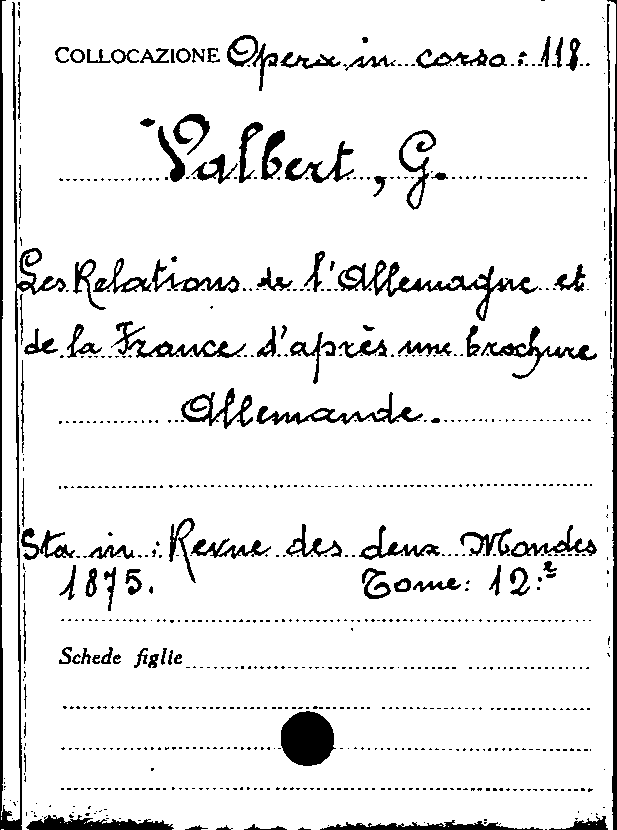 COLLOCAZIONE Opera in corso: 118
Valbert, G.
Les Relations de l'Allemagne et
de la France d'après une brochure
Allemande.
Sta in: Revue des deux Mondes
1875. Tome: 12:e
Schede figlie